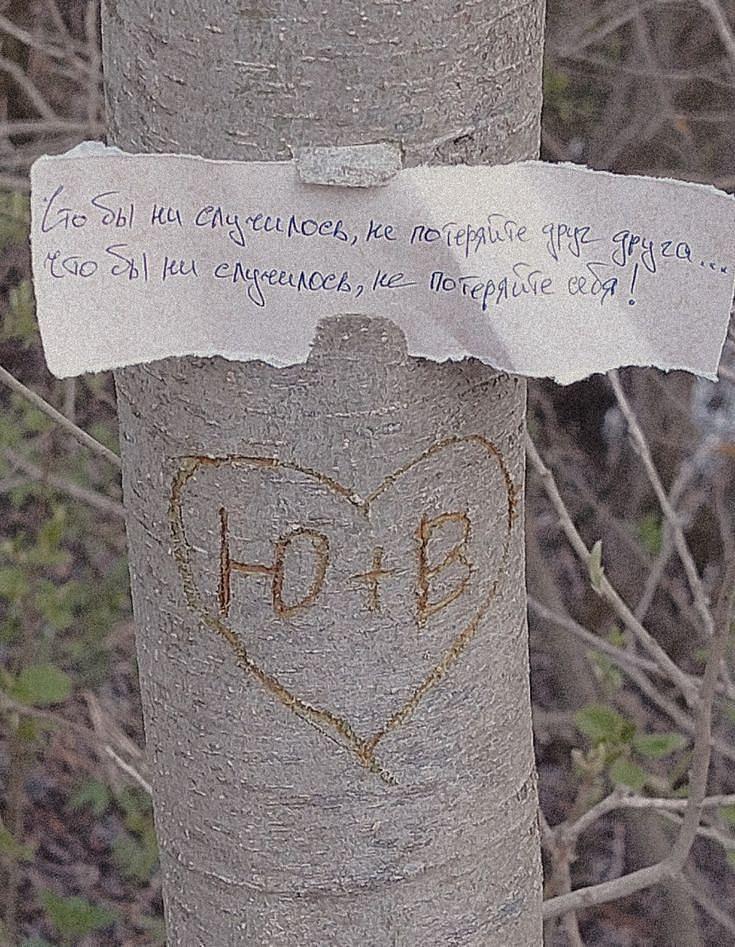 Что бы ни случилось, не потеряйте друг друга...
Что бы ни случилось, не потеряйте себя!
Ю + В